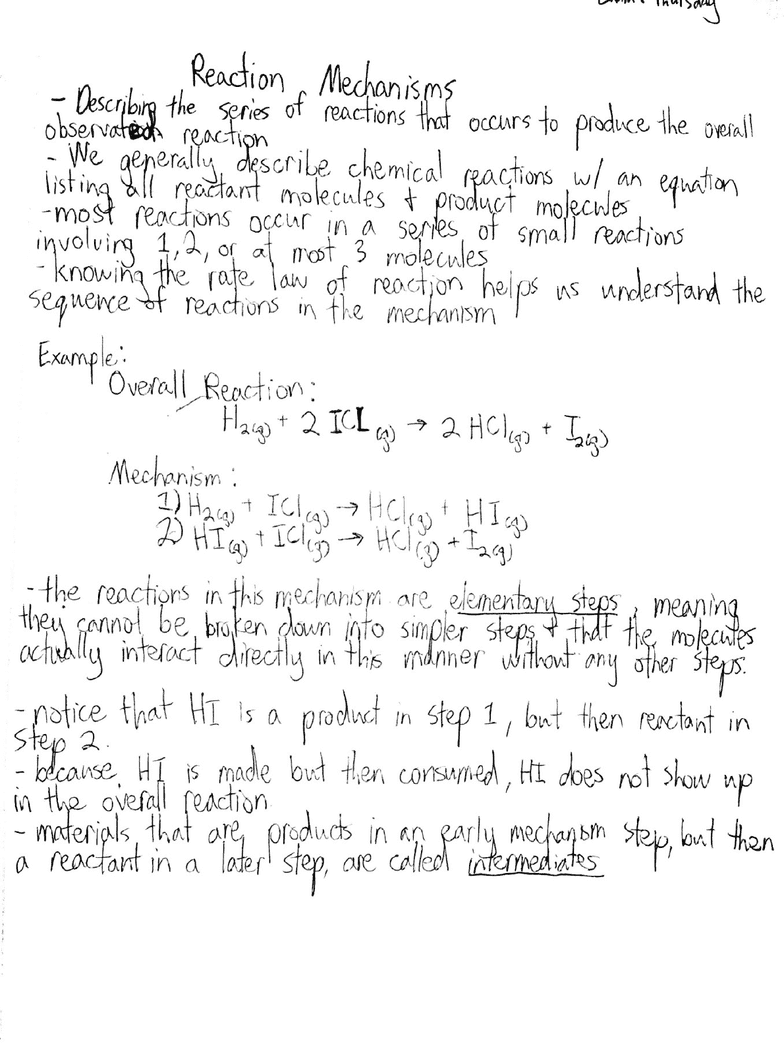 Thursday
Reaction Mechanisms
- Describing the series of reactions that occurs to produce the overall
observated reaction
- We generally describe chemical reactions w/ an equation
listing all reactant molecules + product molecules
- most reactions occur in a series of small reactions
involving 1, 2, or at most 3 molecules
- knowing the rate law of reaction helps us understand the
sequence of reactions in the mechanism
Example:
Overall Reaction:
H₂(g) + 2 ICL (g) → 2 HCl(g) + I₂(g)
Mechanism:
1) H₂(g) + ICl(g) → HCl(g) + HI(g)
2) HI(g) + ICl(g) → HCl(g) + I₂(g)
- the reactions in this mechanism are elementary steps, meaning
they cannot be broken down into simpler steps + that the molecules
actually interact directly in this manner without any other steps.
- notice that HI is a product in step 1, but then reactant in
step 2.
- because HI is made but then consumed, HI does not show up
in the overall reaction
- materials that are products in an early mechanism step, but then
a reactant in a later step, are called intermediates